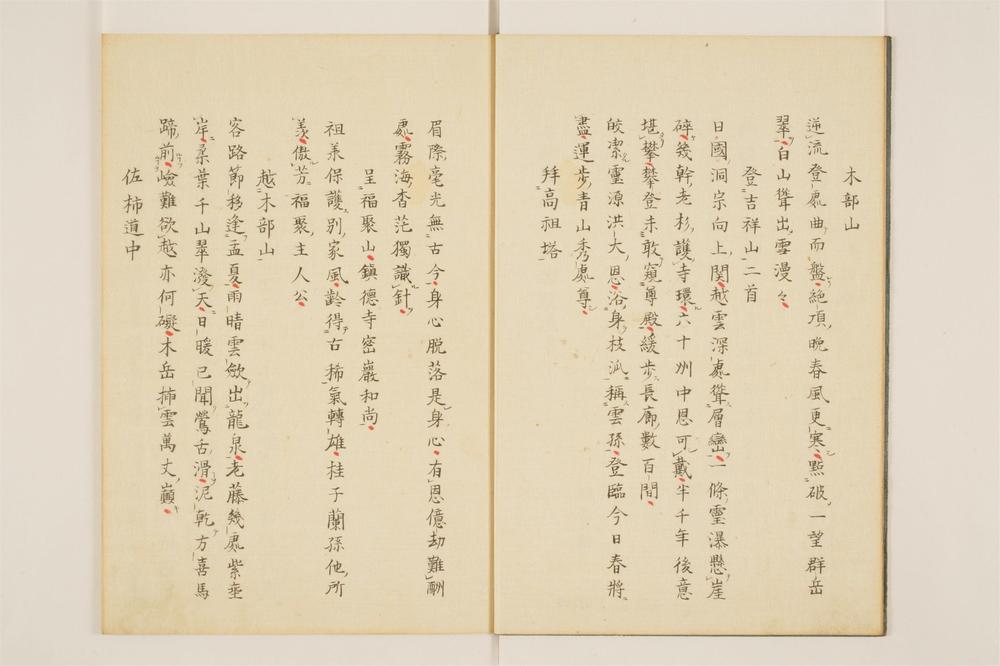 木部山
逆流登處曲而盤絶頂晩春風更寒點破一望群岳
翠白山聳出雪漫々
登吉祥山二首
日國洞宗向上関越雲深處聳層巒一條靈瀑懸崖
碎幾幹老杉護寺環六十州中恩可戴半千年後意
堪攀攀登未敢窺尊殿緩歩長廊數百間
皎潔靈源洪大恩浴身枝派稱雲孫登臨今日春將
盡運歩青山秀處尊
拜高祖塔
眉際毫光無古今身心脱落是身心有恩億劫難酬
處霧海香茫獨識針
呈福聚山鎮德寺密巖和尚
祖羕保護別家風齡得古稀氣轉雄桂子蘭孫他所
羨傲芳福聚主人公
越木部山
客路節移逢孟夏雨晴雲歛出龍泉老藤幾處紫垂
岸柔葉千山翠潑天日暖已聞鶯舌滑泥乾方喜馬
蹄前嶮難欲越亦何礙木岳揷雲萬丈巓
佐柿道中